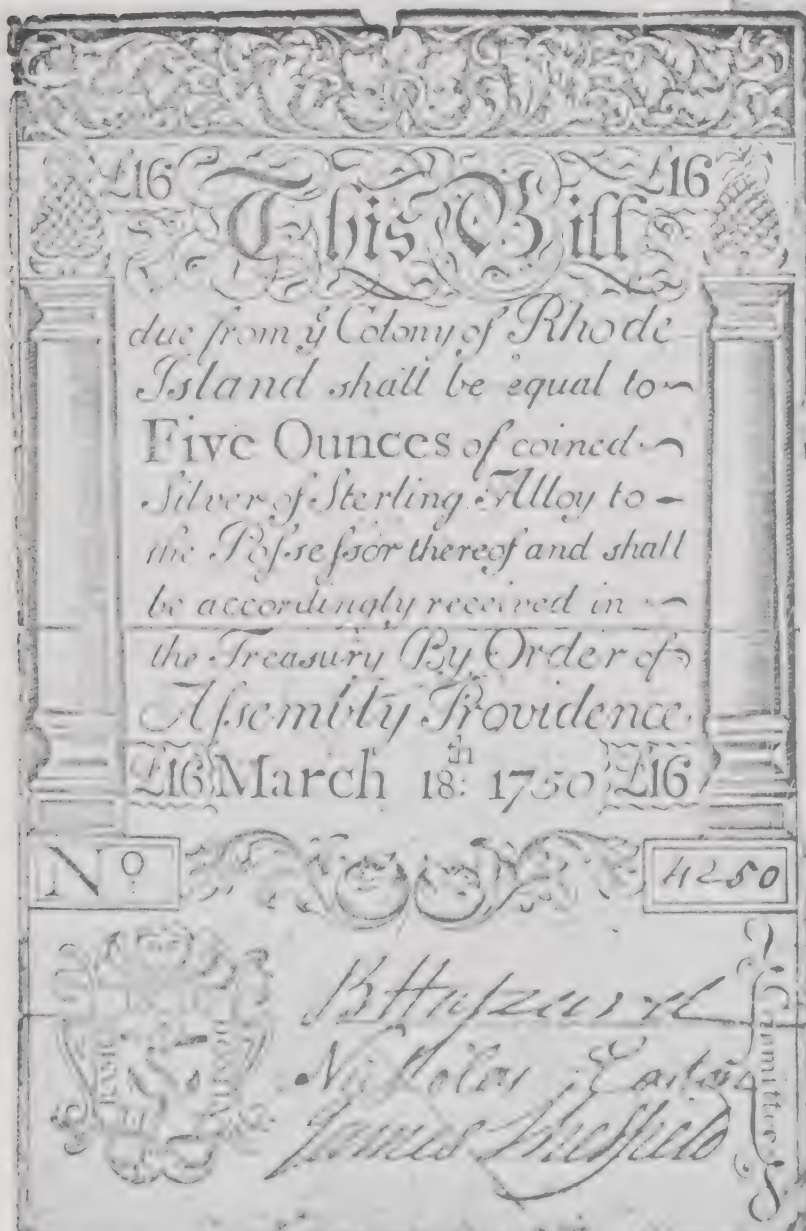 £16 This Bill £16
due from yͤ Colony of Rhode
Island shall be equal to
Five Ounces of coined
Silver of Sterling Alloy to
the Poſseſsor thereof and shall
be accordingly received in
the Treasury By Order of
Aſsembly Providence
£16 March 18th: 1750 £16
No 4250
B Hazard
Nicholas Easton
James Sheffield
Committee